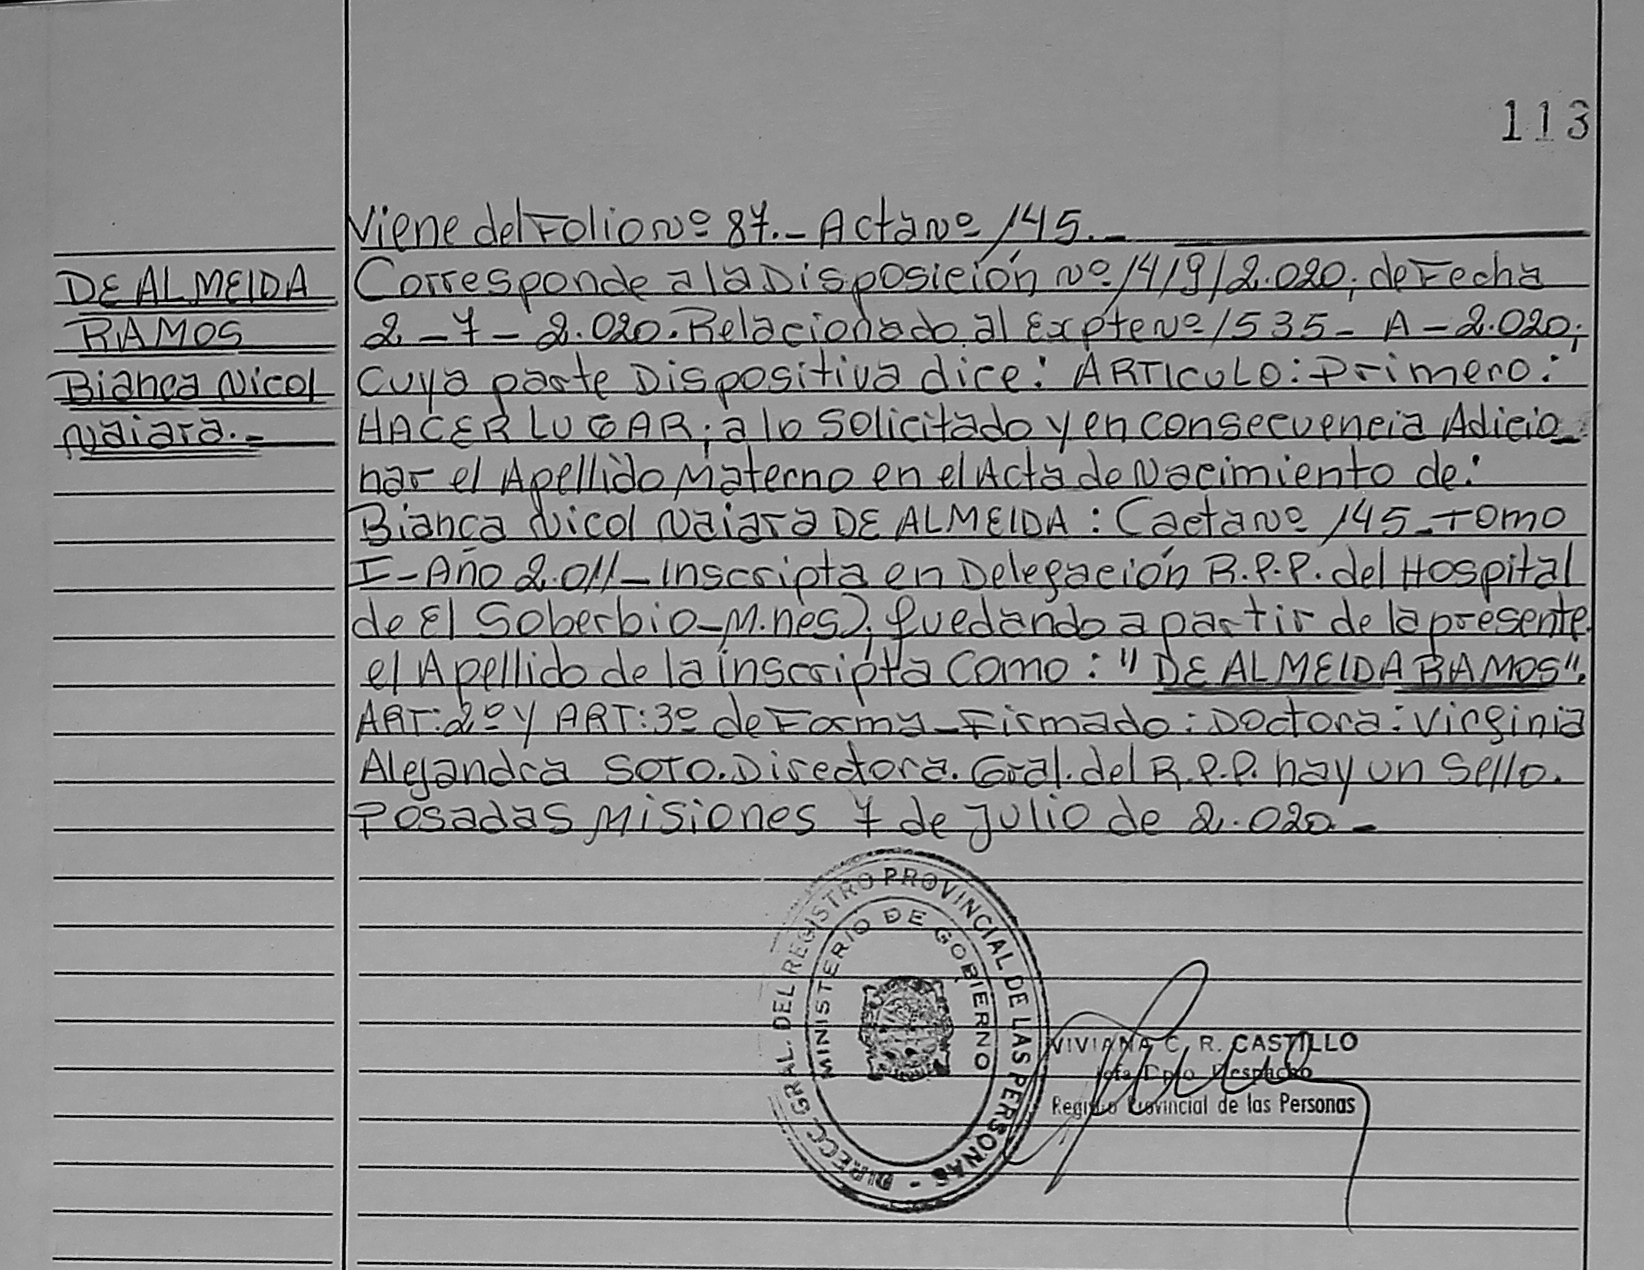 113
Viene del Folio Nº 87.- Acta Nº 145.-
DE ALMEIDA
RAMOS
Bianca Nicol
Naiara.-
Corresponde a la Disposición Nº 1419/2.020; de Fecha
2-7-2.020. Relacionado al Expte Nº 1535-A-2.020;
Cuya parte Dispositiva dice: ARTICULO: Primero:
HACER LUGAR; a lo Solicitado y en consecuencia Adicio-
nar el Apellido Materno en el Acta de Nacimiento de:
Bianca Nicol Naiara DE ALMEIDA: (acta Nº 145-Tomo
I-Año 2.011-Inscripta en Delegación R.P.P. del Hospital
de El Soberbio-M.nes); quedando a partir de la presente
el Apellido de la inscripta Como: "DE ALMEIDA RAMOS".
ART: 2º y ART: 3º de Forma-Firmado: Doctora: Virginia
Alejandra SOTO. Directora. Gral. del R.P.P. hay un Sello.
Posadas Misiones 7 de Julio de 2.020-
DIRECC. GRAL. DEL REGISTRO PROVINCIAL DE LAS PERSONAS -
MINISTERIO DE GOBIERNO
VIVIANA C. R. CASTILLO
Jefa Dpto Despacho
Registro Provincial de las Personas